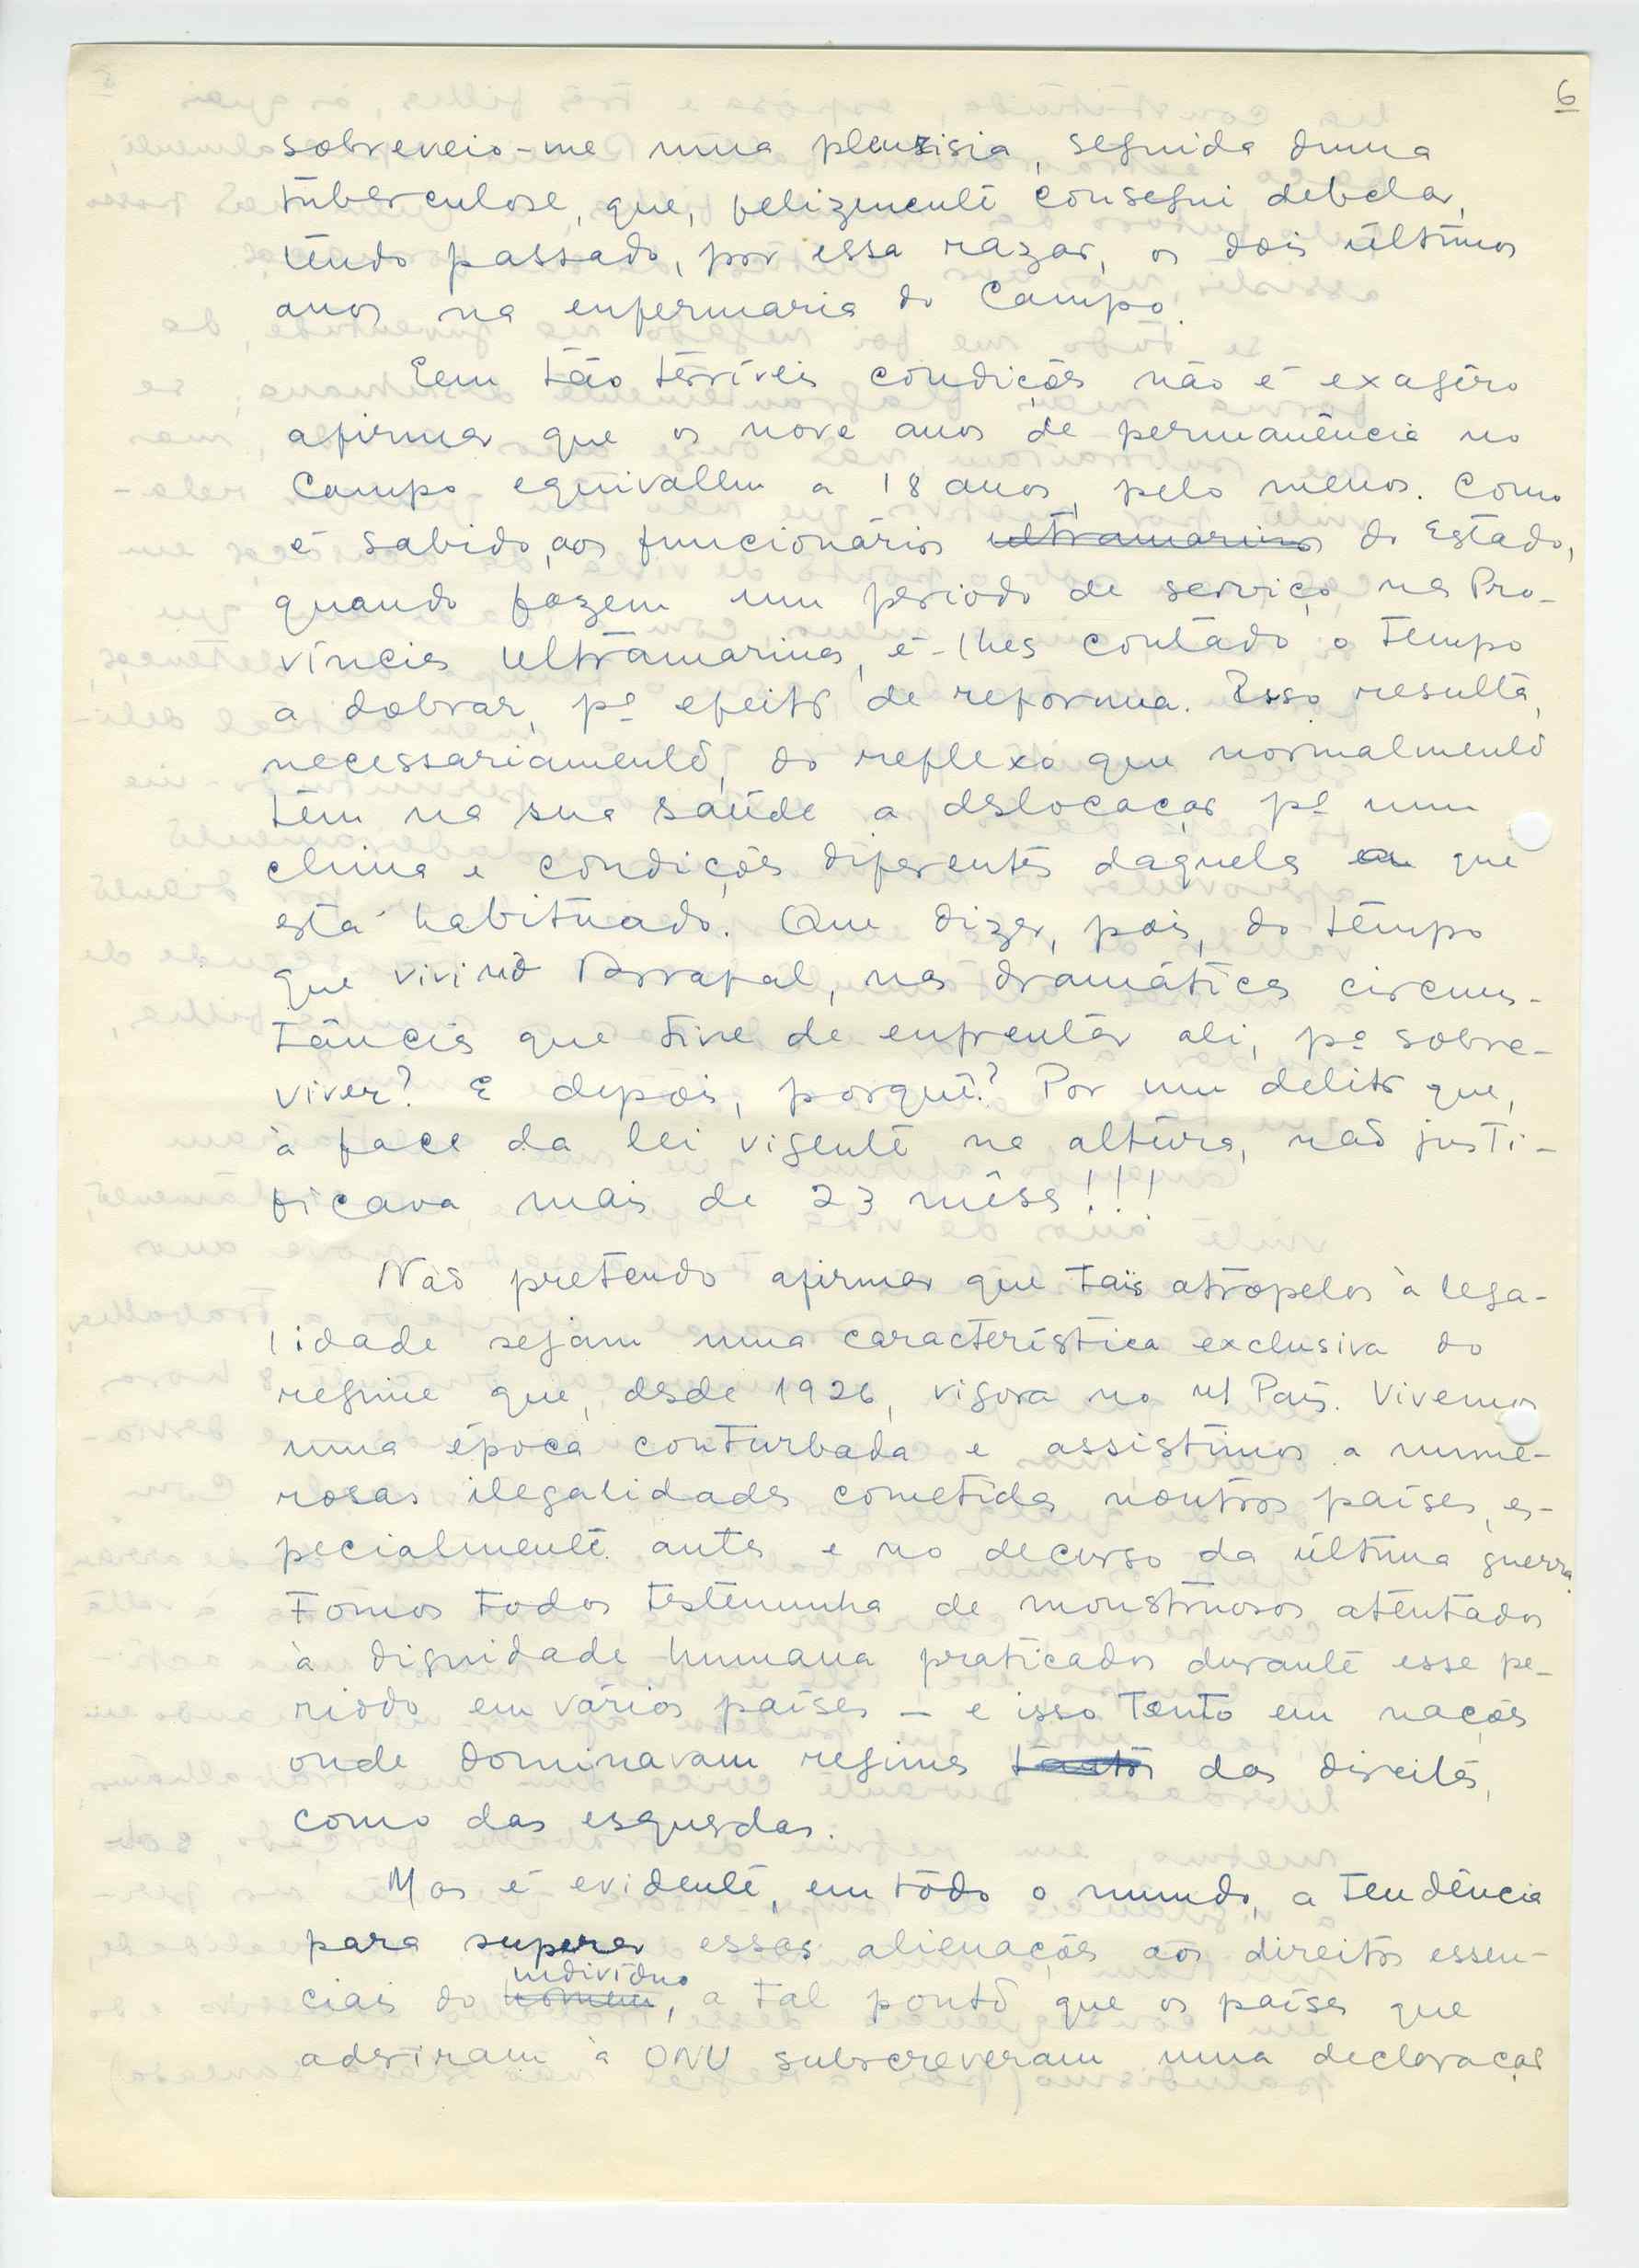 6
sobreveio-me uma pleurisia, seguida duma
tuberculose, que, felizmente consegui debelar,
tendo passado, por essa razão, os dois últimos
anos na enfermaria do Campo.
Em tão terríveis condições não é exagêro
afirmar que os nove anos de permanência no
Campo equivalem a 18 anos, pelo menos. Como
é sabido, aos funcionários ultramarinos do Estado,
quando fazem um período de serviço nas Pro-
víncias Ultramarinas, é-lhes contado o tempo
a dobrar, pª efeito de reforma. Isso resulta,
necessariamente, do reflexo que normalmente
têm na sua saúde a deslocação pª um
clima e condições diferentes daquelas a que
está habituado. Que dizer, pois, do tempo
que vivi no Tarrafal, nas dramáticas circuns-
tâncias que tive de enfrentar ali, pª sobre-
viver? E depois, porquê? Por um delito que,
à face da lei vigente na altura, não justi-
ficava mais de 23 mêses!!!
Não pretendo afirmar que tais atropelos à lega-
lidade sejam uma característica exclusiva do
regime que, desde 1926, vigora no n/ País. Vivemos
uma época conturbada e assistimos a nume-
rosas ilegalidades cometidas noutros países, es-
pecialmente antes e no decurso da última guerra.
Fomos todos testemunha de monstruosos atentados
à dignidade humana praticados durante esse pe-
ríodo em vários países – e isso tanto em nações
onde dominavam regimes tanto das direitas,
como das esquerdas.
Mas é evidente, em tôdo o mundo, a tendência
para superar essas alienações aos direitos essen-
indivíduo
ciais do homem, a tal ponto que os países que
aderiram à ONU subscreveram uma declaração